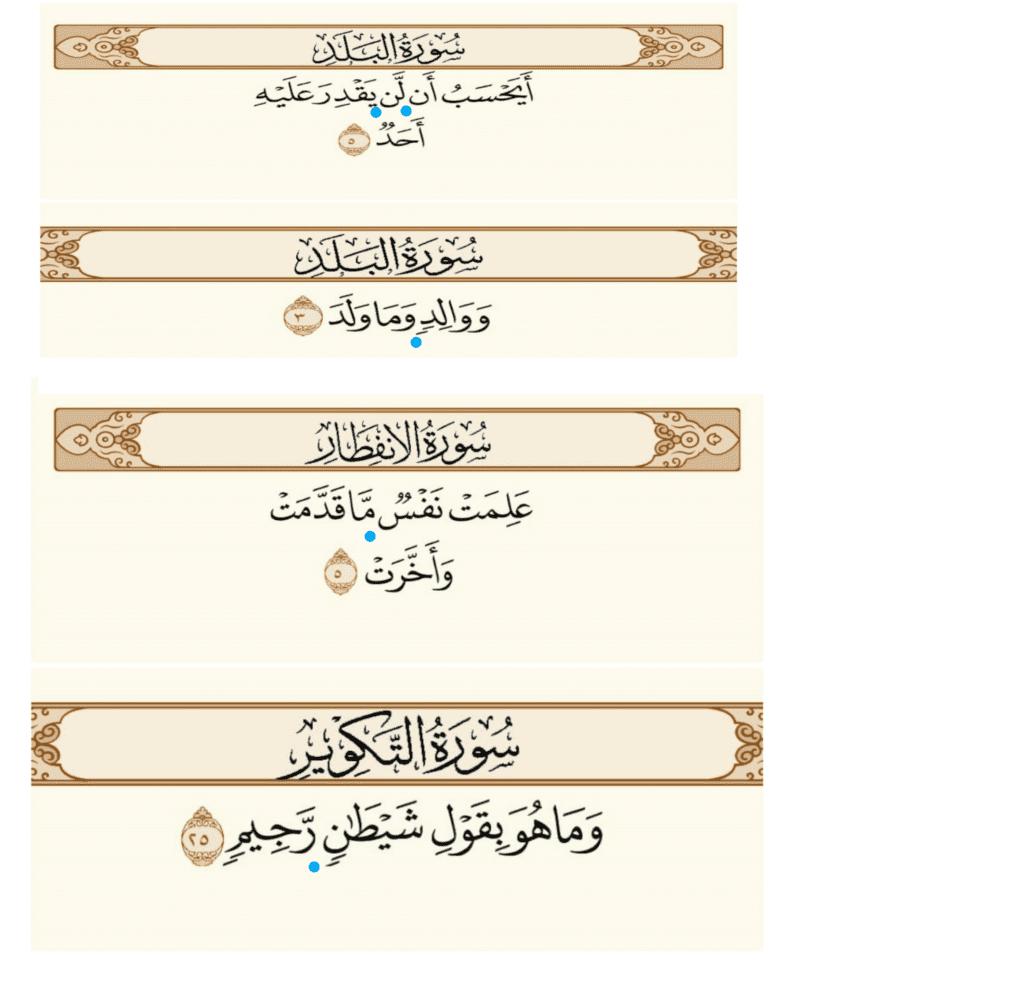 سُورَةُ البَلَدِ
أَيَحْسَبُ أَن لَّن يَقْدِرَ عَلَيْهِ
أَحَدٌ ٥
سُورَةُ البَلَدِ
وَوَالِدٍ وَمَا وَلَدَ ٣
سُورَةُ الانفِطَارِ
عَلِمَتْ نَفْسٌ مَّا قَدَّمَتْ
وَأَخَّرَتْ ٥
سُورَةُ التَّكْوِيرِ
وَمَا هُوَ بِقَوْلِ شَيْطَٰنٍ رَّجِيمٍ ٢٥